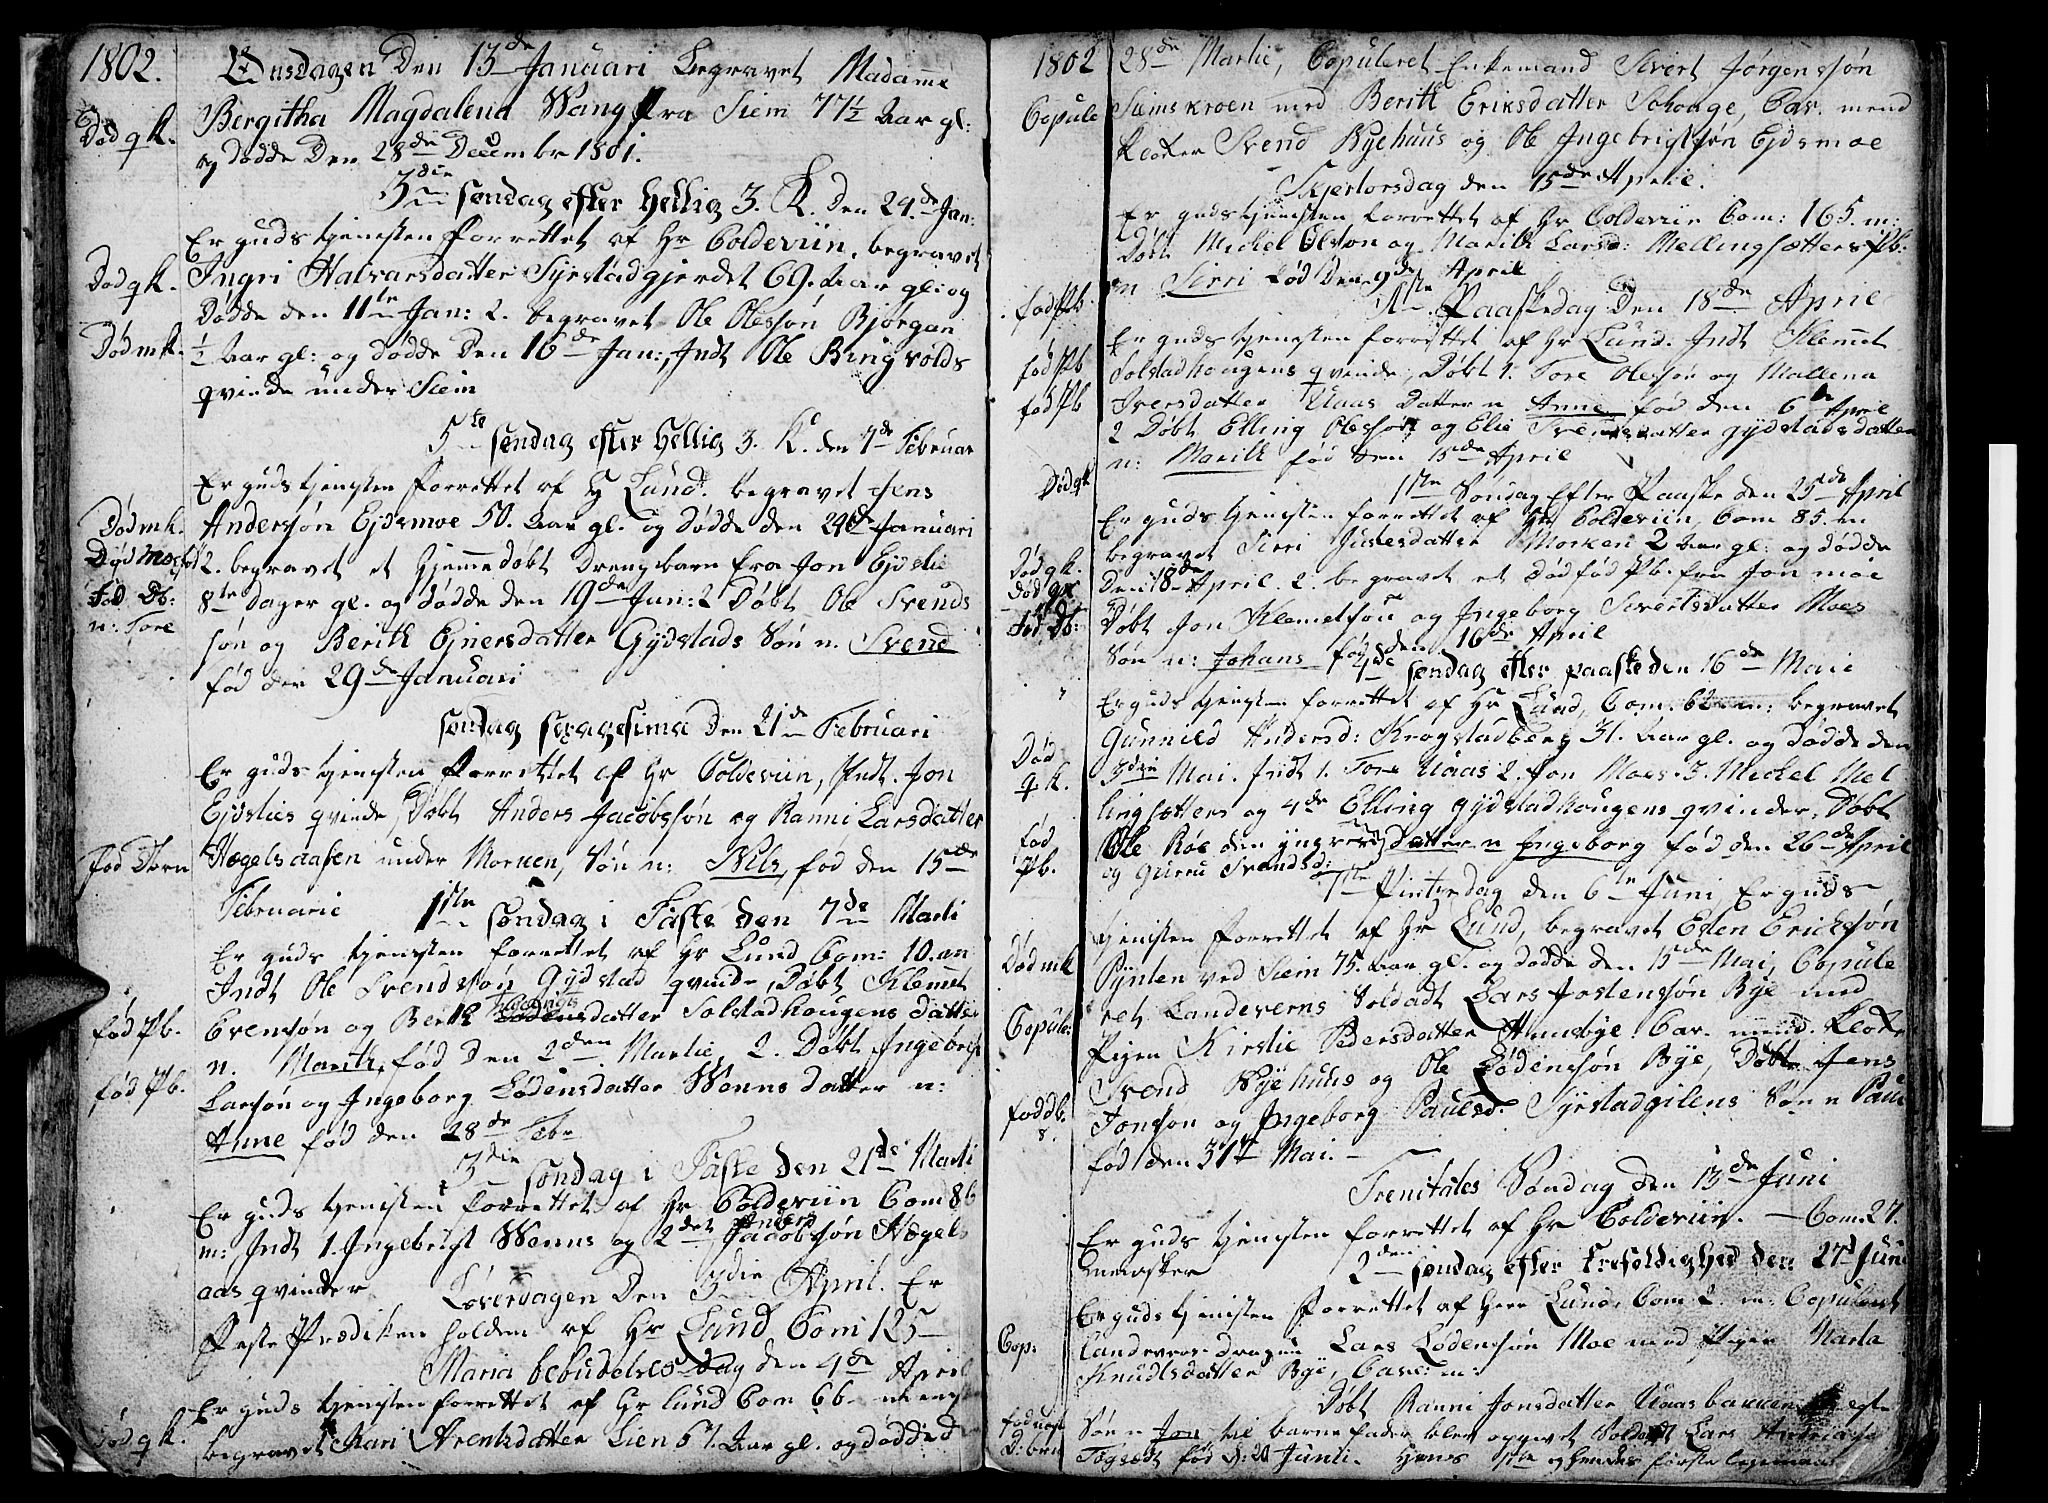 1802.
Onsdagen Den 13de Januari Begravet Madame
Død qk.
Bergitha Magdalena Wang fra Siem 77½ Aar gl:
og dødde Den 28de Decembr 1801.
3die søndag efter Hellig 3. K. den 24de Jan:
Er guds tjenisten forrettet af Hr Coldeviin, begravet
Død qk.
Ingri Halvarsdatter Syrstadgjerdet 69. Aar gl: og
Dødde den 11te Jan: 2. begravet Ole Olessøn Bjørgan
Død mk.
½ Aar gl: og dødde Den 16de Jan:, Indt Ole Ringvolds
qvinde under Siem
5te søndag efter Hellig 3. K. den 7de Februar
Er guds tjenisten forrettet af H Lund. begravet Jens
Død mk.
Anderssøn Ejdsmoe 50. Aar gl. og Dødde den 24de Januari
2. begravet et hjemmedøbt Drengebarn fra Jon Ejdslie
Fød Db:
8te Dager gl. og dødde den 19de Jan: 2 Døbt Ole Svends
n: Tore
søn og Berith Ejnersdatter Gydstads Søn n. Svend
fød den 29de Januari
søndag sexagesima Den 21de Februari
Er guds tjenisten forrettet af Hr Coldeviin, Indt. Jon
Ejdslies qvinde, Døbt Anders Jacobssøn og Ranni Larsdatter
Hægelsaasen under Morken, Søn n: Nils, fød den 15de
Februarie
1ste søndag i Faste den 7de Marti
Er guds tjenisten forrettet af Hr Lund Com: 10. m
Indt Ole Svendssøn Gydstad qvinde, Døbt Klemet
fød Pb.
Evensøn og Berit datter Solstadhougens datter
n. Marith, fød Den 2den Martie, 2. Døbt Ingebrigt
fød Pb.
Larsøn og Ingeborg Lødensdatter Wenns datter n:
Anne fød den 28de Febr
3die søndag i Faste den 21de Marti
Er guds tjenisten forrettet af Hr Coldeviin Com 86
m: Indt 1. Ingebrigt Wenns og 2det Anders Jacobssøn Hægels
aas qvinder
Løverdagen Den 3die April. Er
Faste Prædiken holden af Hr Lund Com: 125
Maria bebudelses Dag den 4de April
Er guds tjenisten forrettet af Hr Lund Com 66.
Død qk.
begravet Kari Arentsdatter Lien 67. Aar gl. og dødde d
1802
28de Martie, Copuleret Enkemand Sivert Jørgenssøn
Copule
Siemskroen med Berith Eriksdatter Schouge, Cav. mend
klokker Svend Byehuus og Ole Ingebrigtsøn Ejdsmoe
Skjertorsdag den 15de April.
Er guds tjenisten forrettet af Hr Coldeviin Com: 165. m:
Døbt Mickel Olsøn og Marith Larsd: Mellingsætters Pb.
fød Pb
n Sirri fød Den 9de April
1ste Paaskedag Den 18de April
Er guds tjenisten forrettet af Hr Lund. Indt Klemet
fød Pb
Solstadhougens qvinde, Døbt 1. Tore Olessøn og Mallena
fød Pb
Iversdatter Uaas Datter n Anne fød den 6te April
2 Døbt Elling Olessøn og Elie datter Gydstads datter
n: Marith fød den 15de April
1ste Søndag Efter Paaske den 25de April
Død qk
Er guds tjenisten forrettet af Hr Coldeviin, Com 85. m
begravet Sirri Morken 2 Aar gl: og dødde
Død qk.
Den 18de April. 2. begravet et Dødfød Pb. fra Jon moe
Fød Db:
Døbt Jon Klemetsøn og Ingeborg Sivertsdatter Moes
Søn n: Johans fød den 16de April
4de søndag efter paaske den 16de Mai
Er guds tjenisten forrettet af Hr Lund, Com. begravet
Død qk.
Gunnild Andersd: Krogstadberg 31. Aar gl. og dødde den
3die Mai. Indt 1. Tore Uaas 2. Jon Moes. 3. Mickel Mel
lingsætters og 4de Elling gydstadhougens qvinder, Døbt
fød Pb.
Ole Røe den yngre datter n Ingeborg fød den 26de April
og Gurru Svendsd:
1ste Pintzedag den 6te Juni Er guds
tjenisten forrettet af Hr Lund, begravet Esten Erickssøn
Død mk
Pynten ved Siem 75. Aar gl. og dødde den 15de Mai, Copule
ret Landeverns Soldadt Lars Jostenssøn Bye med
Copule:
Pigen Kirstie Pedersdatter Hunebye Cav. mend. klokr
Svend Byehuus og Ole Lødenssøn Bye, Døbt Jens
fød Db.
Jonsøn og Ingeborg Paulsd. Syrstadgilens Søn n Paul
fød den 31te Mai.
Trenitates Søndag den 13de Juni
Er guds tjenisten forrettet af Hr Coldeviin. Com. 27.
mennisker
2den søndag efter trefoldighed den 27d Juni
Er guds tjenisten forrettet af Herr Lund, Com 2. m: Copuleret
Cop:
landeverns dragun Lars Lødenssøn Moe med Pigen Marta
Knudtsdatter Bye, Cave: m:
Døbt Ranni Jonsdatter Uaasbakken uegte
Søn n Jon til barnefader blev opgivet Soldadt Lars
fød d: 20 Junii. Hans 1ste og hendes første